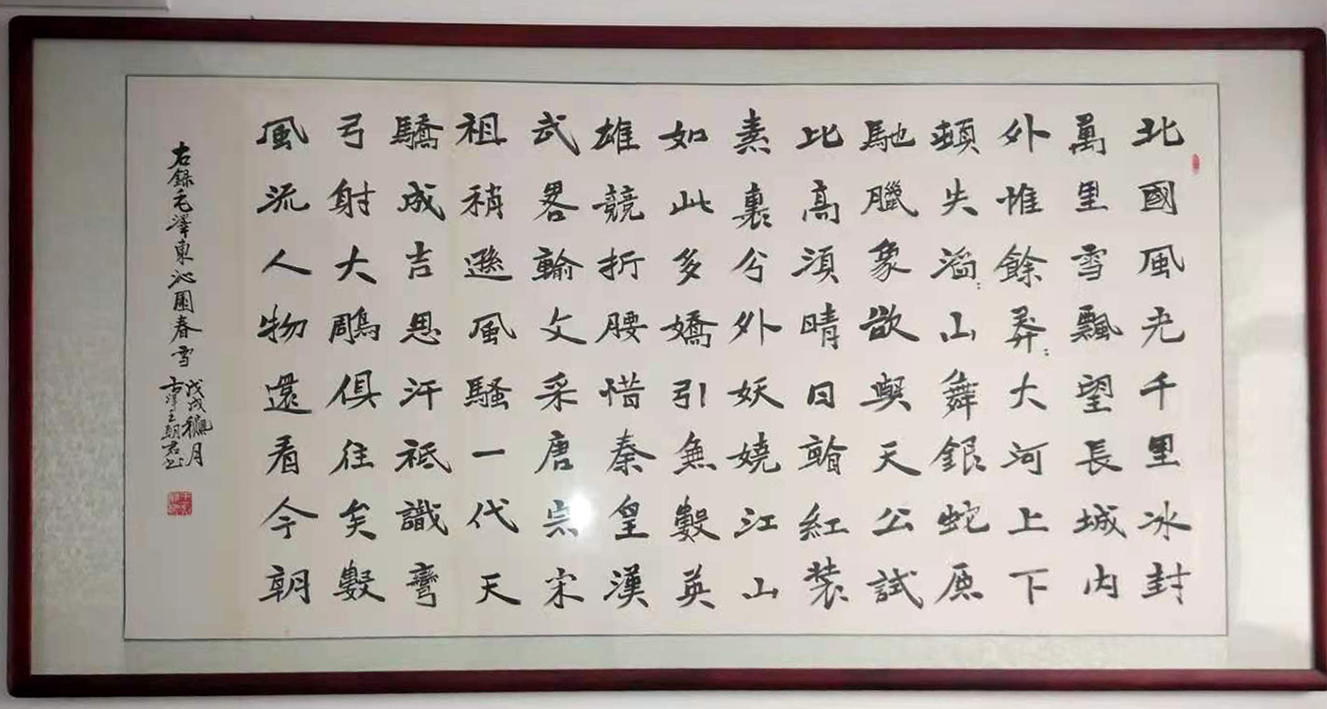 北國風光千里冰封
萬里雪飄望長城內
外惟餘莽：大河上下
頓失滔：山舞銀蛇原
馳臘象欲與天公試
比高須晴日看紅裝
素裹分外妖嬈江山
如此多嬌引無數英
雄競折腰惜秦皇漢
武畧輸文采唐宗宋
祖稍遜風騷一代天
驕成吉思汗祗識彎
弓射大鵰俱往矣數
風流人物還看今朝
右錄毛澤東沁園春雪
戊戌穐月